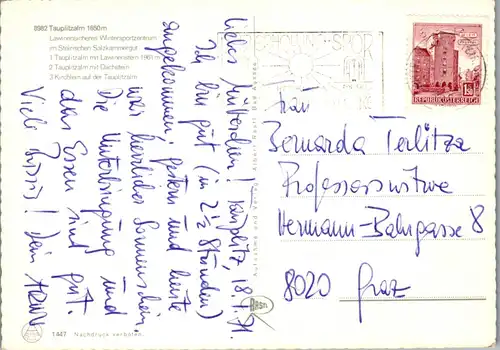 8982 Tauplitzalm 1650 m
Lawinensicheres Wintersportzentrum
im Steirischen Salzkammergut
1 Tauplitzalm mit Lawinenstein 1961 m
2 Tauplitzalm mit Dachstein
3 Kirchlein auf der Tauplitzalm
Tauplitz, 18.1.71
Liebes Mütterchen!
Ich bin gut (in 2½ Stunden)
angekommen, gestern und heute
war herrlicher Sonnenschein.
Die Unterbringung und
das Essen sind gut.
Viele Bussis! Dein
REPUBLIK ÖSTERREICH
Frau
Bernarda Terlitza
Professorswitwe
Hermann-Bahrgasse 8
8020 Graz
1447 Nachdruck verboten